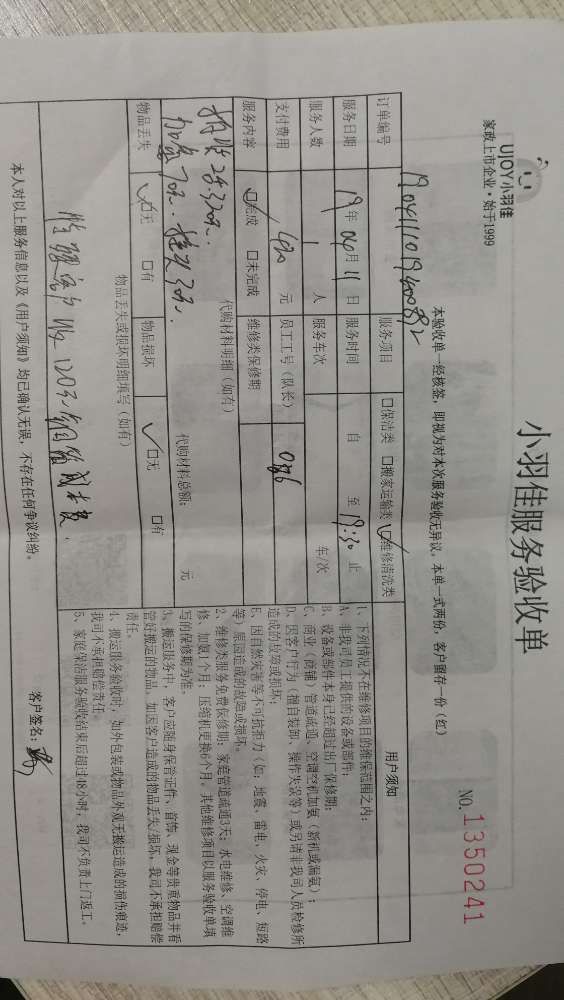 UJOY小羽佳
家政上市企业·始于1999
小羽佳服务验收单
NO. 1350241
本验收单一经核签，即视为对本次服务验收无异议，本单一式两份，客户留存一份（红）
订单编号
服务项目 口保洁类 口搬家运输类 口维修清洗类
服务日期 19年04月11日 服务时间 自 至 19:30 止
服务人数 1 人 服务车次 车/次
支付费用 元 员工工号（队长） 086
服务内容 口完成 口未完成 维修类保修期
代购材料明细（如有）
代购材料总额： 元
物品丢失 口无 口有 物品损坏 口无 口有
物品丢失或损坏明细填写（如有）
用户须知
1、下列情况不在维修项目的维保范围之内：
A、非我司员工提供的设备或部件；
B、设备或部件本身已经超过出厂保修期；
C、商业（商铺）管道疏通、空调空机加氨（新机或漏氨）；
D、因客户行为（擅自装卸、操作失误等）或另请非我司人员检修所
造成的故障或损坏；
E、因自然灾害等不可抗拒力（如：地震、雷电、火灾、停电、短路
等）原因造成的故障或损坏。
2、维修类服务免费保修期：家庭管道疏通3天；水电维修、空调维
修、加氨1个月；压缩机更换6个月，其他维修项目以服务验收单填
写的保修期为准。
3、搬运服务中，客户应随身保管证件、首饰、现金等贵重物品并看
管好搬运的物品，如因客户造成的物品丢失/损坏，我司不承担赔偿
责任。
4、搬运服务验收时，如外包装或物品外观无搬运造成的损伤痕迹，
我司不承担赔偿责任。
5、家庭保洁服务验收结束后超过48小时，我司不负责上门返工。
本人对以上服务信息以及《用户须知》均已确认无误，不存在任何争议纠纷。
客户签名：